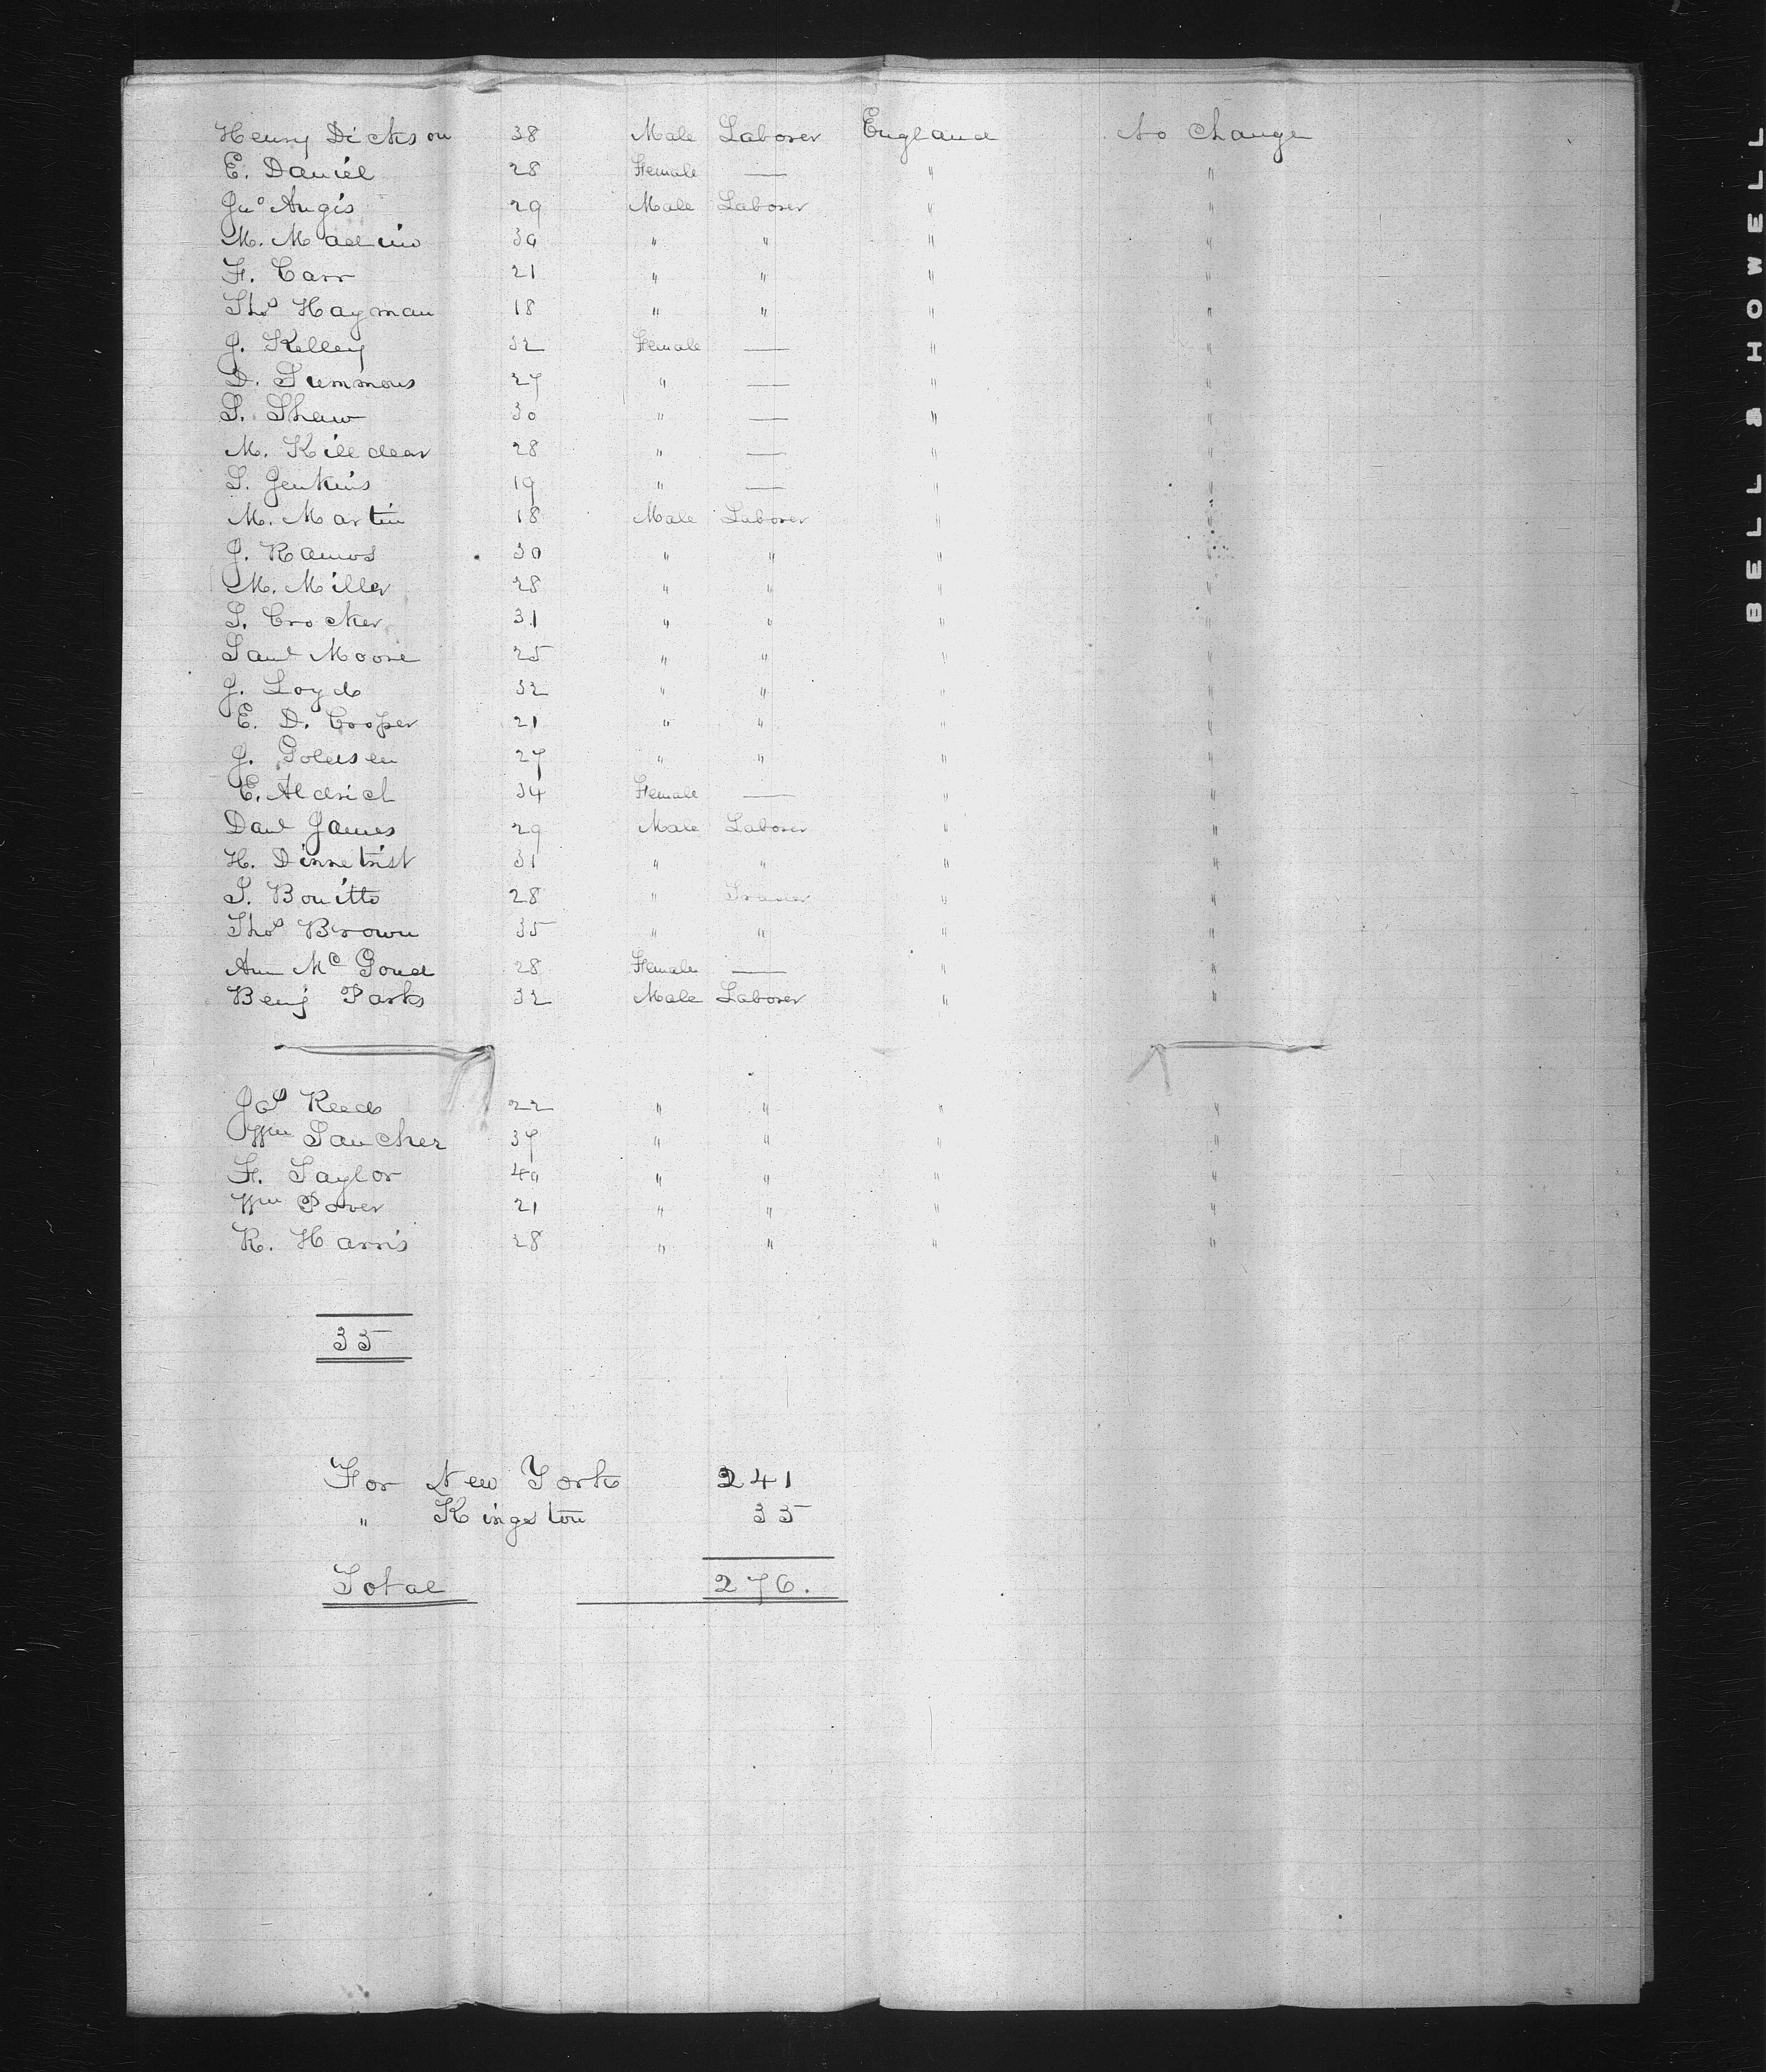 Henry Dickson 38 Male Laborer England No Change
E. Daniel 28 Female — " "
Jno Angis 29 Male Laborer " "
M. 30 " " " "
F. Carr 21 " " " "
Thos Hayman 18 " " " "
J. Kelley 32 Female — " "
D. Summons 27 " — " "
S. Shaw 30 " — " "
M. Killdear 28 " — " "
S. Jenkins 19 " — " "
M. Martin 18 Male Laborer " "
J. Ramos 30 " " " "
M. Miller 28 " " " "
S. Crocker 31 " " " "
Saml Moore 25 " " " "
J. Loyd 32 " " " "
E. D. Cooper 21 " " " "
J. 27 " " " "
E. Aldrich 34 Female — " "
Danl James 29 Male Laborer " "
H. 31 " " " "
S. Bonitto 28 " Trader " "
Thos Brown 35 " " " "
Ann Mc 28 Female — " "
Benj Parks 32 Male Laborer " "
Jos Reed 22 " " " "
Wm 37 " " " "
F. Taylor 40 " " " "
Wm Pover 21 " " " "
R. Harris 28 " " " "
35
For New York 241
" Kingston 35
Total 276.
BELL & HOWELL